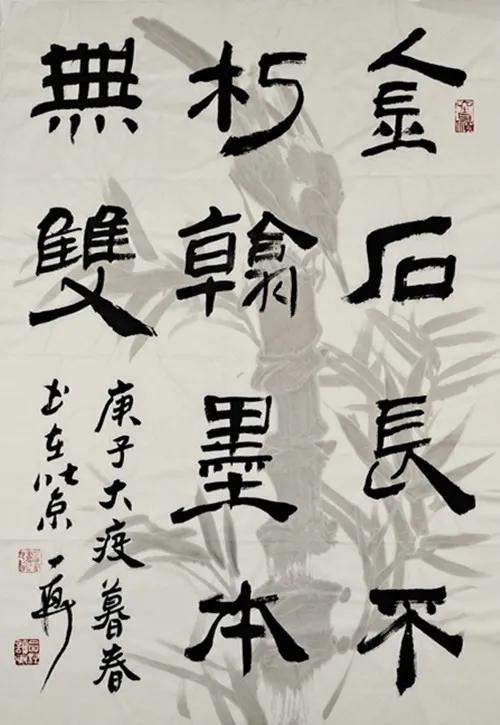 金石長不
朽翰墨本
無雙
庚子大疫暮春
書在北京